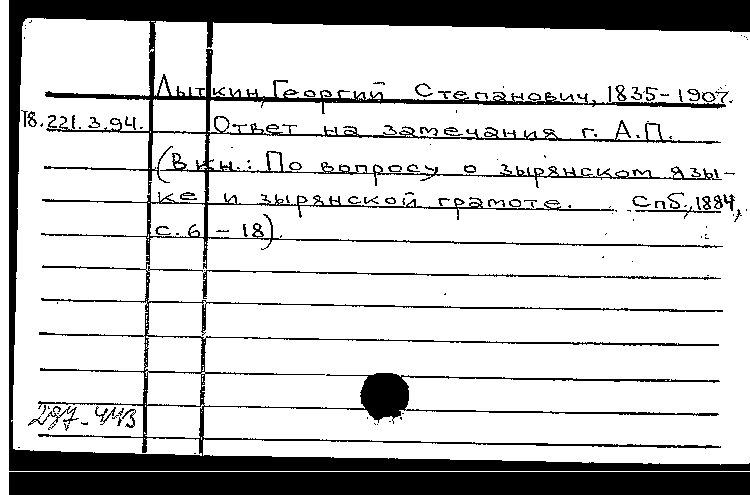 Лыткин, Георгий Степанович, 1835-1907.
18.221.3.94. Ответ на замечания г. А.П.
(В кн.: По вопросу о зырянском язы-
ке и зырянской грамоте. Спб., 1884,
с. 6 - 18).
287-443